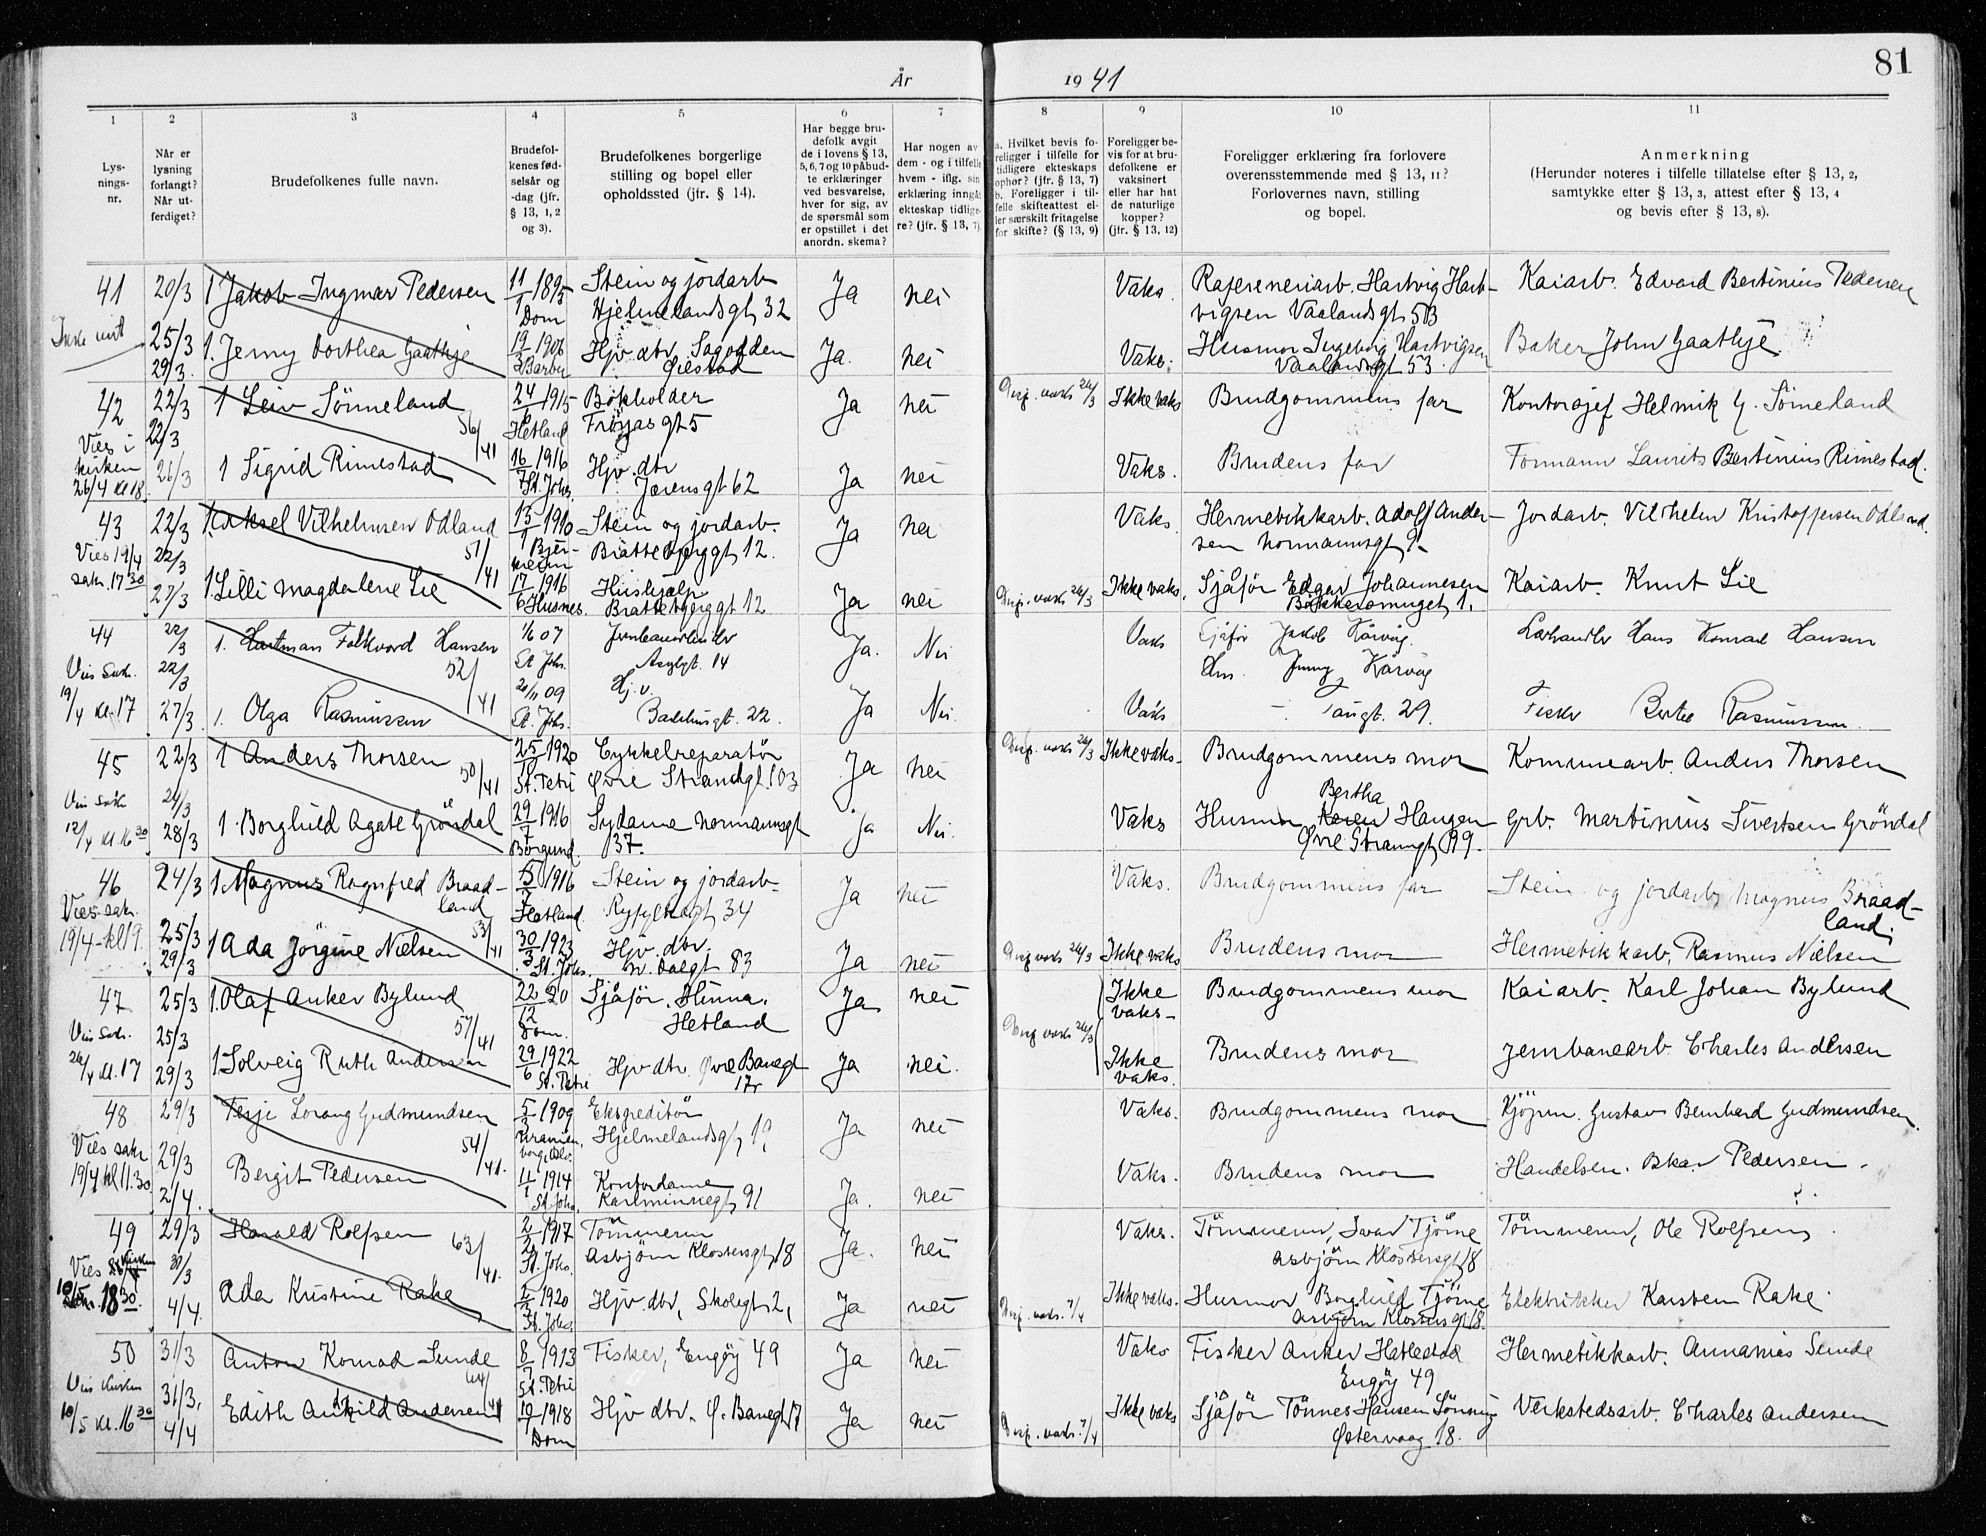 81
År 1941
1 2 3 4 5 6 7 8 9 10 11
Lys-
nings-
nr.
Når er
lysning
forlangt?
Når ut-
ferdiget?
Brudefolkenes fulle navn.
Brudefol-
kenes fød-
selsår og
-dag (jfr.
§ 13, 1, 2
og 3).
Brudefolkenes borgerlige
stilling og bopel eller
opholdssted (jfr. § 14).
Har begge bru-
defolk avgit
de i lovens § 13,
5, 6, 7 og 10 påbud-
te erklæringer
ved besvarelse,
hver for sig, av
de spørsmål som
er opstillet i det
anordn. skema?
Har nogen av
dem - og i tilfelle
hvem - iflg. sin
erklæring inngåt
ekteskap tidlige-
re? (jfr. § 13, 7).
a. Hvilket bevis fo-
religger i tilfelle for
tidligere ekteskaps
ophør? (jfr. § 13, 7)
b. Foreligger i til-
felle skifteattest el-
ler særskilt fritagelse
for skifte? (§ 13, 9)
Foreligger be-
vis for at bru-
defolkene er
vaksinert
eller har hat
de naturlige
kopper?
(jfr. § 13, 12)
Foreligger erklæring fra forlovere
overensstemmende med § 13, 11?
Forlovernes navn, stilling
og bopel.
Anmerkning
(Herunder noteres i tilfelle tillatelse efter § 13, 2,
samtykke efter § 13, 3, attest efter § 13, 4
og bevis efter § 13, 8).
41 20/3 1 Jakob Ingmar Pedersen 11/1 1895 Stein og jordarb Ja nei Vaks. Hartvig Hart- Kaiarb. Edvard Bertinius Pedersen
Dom Hjelmelandsgt 32 vigsen Vaalandsgt 53
25/3 1. Jenny Dorthea Gaathje 19/3 1906 Hjv. dtr. Ja. nei Vaks. Husmor Ingeborg Hartvigsen Baker John Gaathje
29/3. Vaalandsgt 53.
42 22/3 1 Leiv Sömeland 24/6 1915 Bokholder Ja nei Disp. vaks 26/3 Ikke vaks Brudgommens far Kontorsjef Helmik G. Sömeland
Vies i 22/3 56/41 Hetland Fröyas gt 5
kirken 26/3 1 Sigrid Rimestad 16/7 1916 Hjv. dtr Ja nei Vaks. Brudens far Formann Laurits Bertinius Rimestad.
26/4 kl 18. St. Johs. Jærensgt 62
43 22/3 1. Aksel Vilhelmsen Odland 15/1 1910 Stein og jordarb. Ja nei Vaks. Hermetikkarb. Adolf Ander- Jordarb. Vilhelm Kristoffersen Odland.
Vies 19/4 22/3 51/41 Bjer- Brattebjerggt 12. sen Normannsgt
sakr. 17 30 kreim
27/3 1. Lilli Magdalene Lie 17/6 1916 Hushjelp Ja nei Disp. vaks 26/3 Ikke vaks. Sjåför Edgar Johannesen Kaiarb. Knut Lie
Husnes. Brattebjerggt 12. Bakkesmuget 1.
44 22/3 1. Hartman Falkvord Hansen 1/6 07 Ja. Nei Vaks Sjåför Jakob Kårvåg Hans Konrad Hansen
Vies Sakr. 22/3 52/41 St. Johs. Asylgt. 14 Hm. Jenny Kårvåg
19/4 kl. 17 27/3 1. Olga Rasmussen 20/11 09 Hj. v. Ja Nei. Vaks - " - Taugt. 29. Fisker Bertel Rasmussen
St. Johs. Badehusgt. 22.
45 22/3 1 Anders Thorsen 25/10 1920 Cykkelreparatör Ja nei Disp. vaks 26/3 Ikke vaks. Brudgommens mor Kommunearb. Anders Thorsen
50/41 St. Petri Øvre Strandgt 103
Vies sakr 24/3 Bertha
12/4 kl. 16 30 28/3 1. Borghild Agate Gröndal 29/7 1916 Sydame Normannsgt Ja Nei. Vaks Husmor Karen Haugen Grb. Martinius Sivertsen Gröndal
Borgund. 37. Øvre Strandgt 99.
46 24/3 1 Magnus Ragnfred Braad- 1916 Stein og jordarb. Ja nei Vaks. Brudgommens far Stein og jordarb. Magnus Braad-
Vies sakr. land 53/41 Hetland Ryfylkegt 34 land.
19/4 - kl 19. 25/3 1 Ada Jörgine Nielsen 30/3 1923 Hjv. dtr. Ja nei Disp vaks 26/3 Ikke vaks Brudens mor Hermetikkarb. Rasmus Nielsen
29/3 St. Johs. N. Dalgt 83
47 25/3 1. Olaf Anker Bylund 22/12 20 Sjåför. Hinna. Ja nei Ikke Brudgommens mor Kaiarb. Karl Johan Bylund
Vies Sakr. 25/3 57/41 Dom. Hetland Disp vaks 26/3 vaks.
26/4 kl. 17 29/3 1 Solveig Ruth Andersen 29/6 1922 Hjv dtr. Øvre Banegt Ja nei. Ikke Brudens mor Jernbanearb. Charles Andersen
St. Petri 17 vaks.
48 29/3 Terje Lorang Gudmundsen 5/3 1909 Ekspeditör Ja nei Vaks. Brudgommens mor Kjöpm. Gustav Bernhard Gudmundsen.
Vies sakr 29/3 54/41. Hjelmelandsgt
19/4 kl 11.30 2/4. Bergit Pedersen 11/1 1914 Kontordame Ja. nei Vaks. Brudens mor Handelsm. Oskar Pedersen.
St. Johs. Karlminnegt 91
49 29/3 Harald Rolfsen 2/2 1917 Tömmerm Ja. nei Vaks. Tömmerm, Ivar Tjörne Tömmerm, Ole Rolfsen
Vies kirken 31/3 63/41. St. Johs. Asbjörn Klostersgt 18 Asbjörn Klostersgt 18
10/5 18 30. 4/4. Ada Kristine Rake 1920 Hjv. dtr, Skolegt 2, Ja nei Disp. vaks. 7/4 Ikke vaks. Husmor Borghild Tjörne Elektrikker Karsten Rake.
St. Johs. Asbjörn Klostersgt 18.
50 31/3 Anton Konrad Sunde 8/7 1913 Fisker, Engöy 49 Ja nei Vaks Fisker Anker Hatlestad Hermetikkarb. Annanias Sunde
Vies kirken 31/3, 64/41 St. Petri Engöy 49
10/5 kl. 16 30 4/4 Edith Andersen 10/7 1918 Hjv dtr. Ø. Banegt 17 Ja nei Disp. vaks. 7/4 Ikke vaks Sjåför Tönnes Hansen Verkstedsarb. Charles Andersen
Dom Østervaag 18.